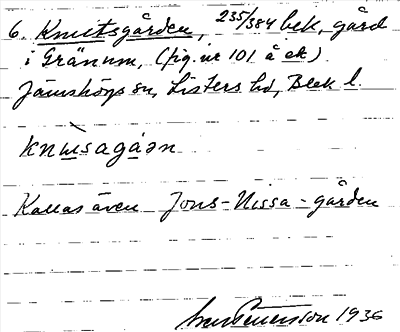 6. Knutsgården, 235/384 bek. gård
i Gränum, (fig. nr 101 å ek).
Jämshögs sn, Listers hd, Blek l.
knùsagåən
Kallas även Jons-Nissa-gården
1936